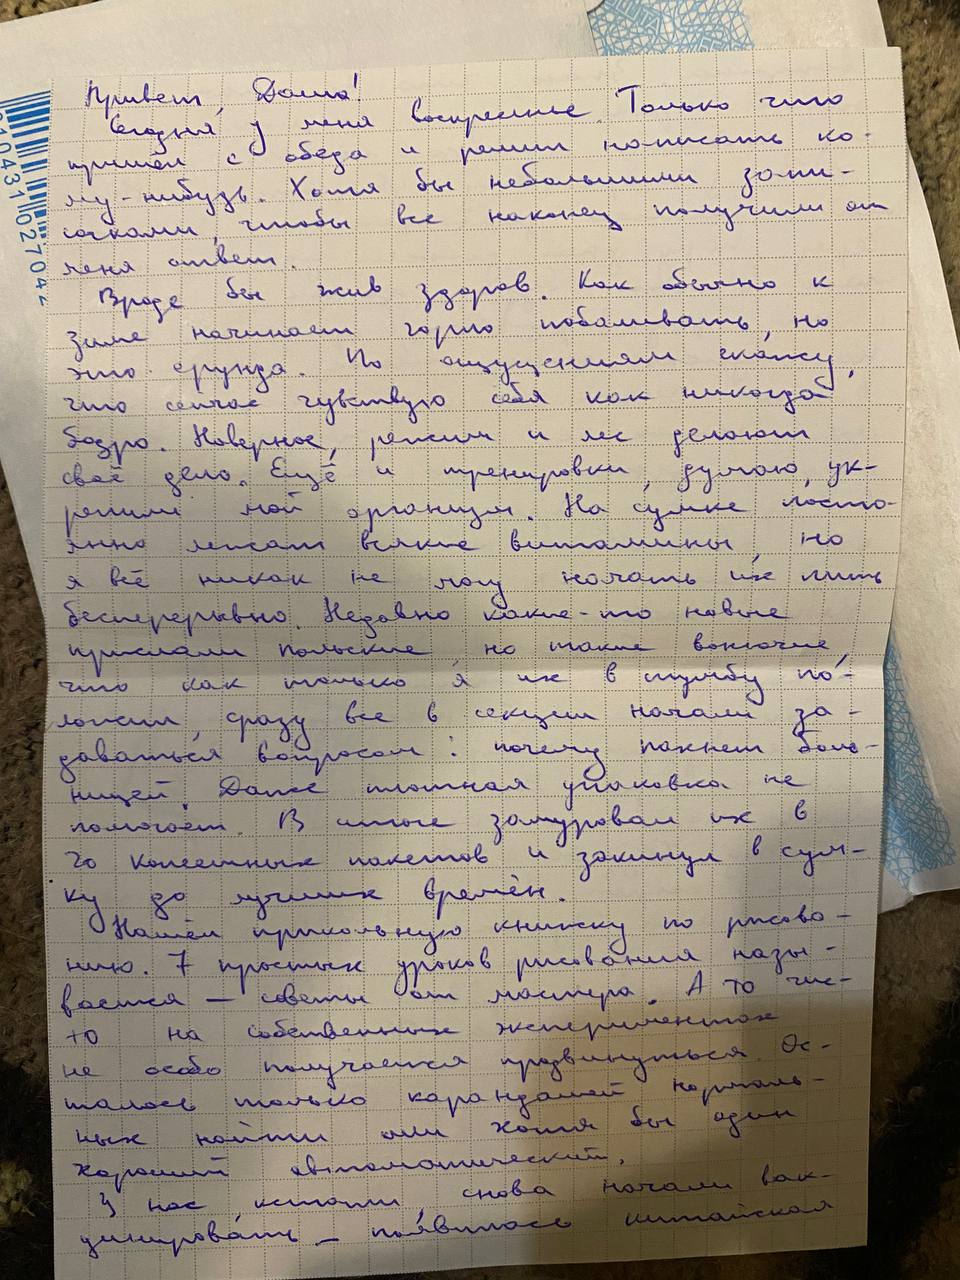 Привет, Даша!
Сегодня у меня воскресенье. Только что
пришёл с обеда и решил написать ко-
му-нибудь. Хотя бы небольшими запи-
сочками, чтобы все наконец получили от
меня ответ.
Вроде бы жив здоров. Как обычно к
зиме начинает горло побаливать, но
это ерунда. По ощущениям скажу,
что сейчас чувствую себя как никогда
бодро. Наверное, режим и лес делают
своё дело. Ещё и тренировки, думаю, ук-
репили мой организм. На сумке посто-
янно лежат всякие витамины, но
я всё никак не могу начать их пить
бесперерывно. Недавно какие-то новые
прислали польские, но такие вонючие,
что как только я их в тумбу по-
ложил сразу все в секции начали за-
даваться вопросом: почему пахнет боль-
ницей. Даже плотная упаковка не
помогает. В итоге замуровал их в
20 пакетов и закинул в сум-
ку до лучших времён.
Нашёл прикольную книжку по рисова-
нию. 7 простых уроков рисования назы-
вается — советы от мастера. А то чис-
то на собственных экспериментах
не особо получается продвинуться. Ос-
талось только карандашей нормаль-
ных найти или хотя бы один
хороший автоматический.
У нас, кстати, снова начали вак-
цинировать — появилась китайская
2104311027042